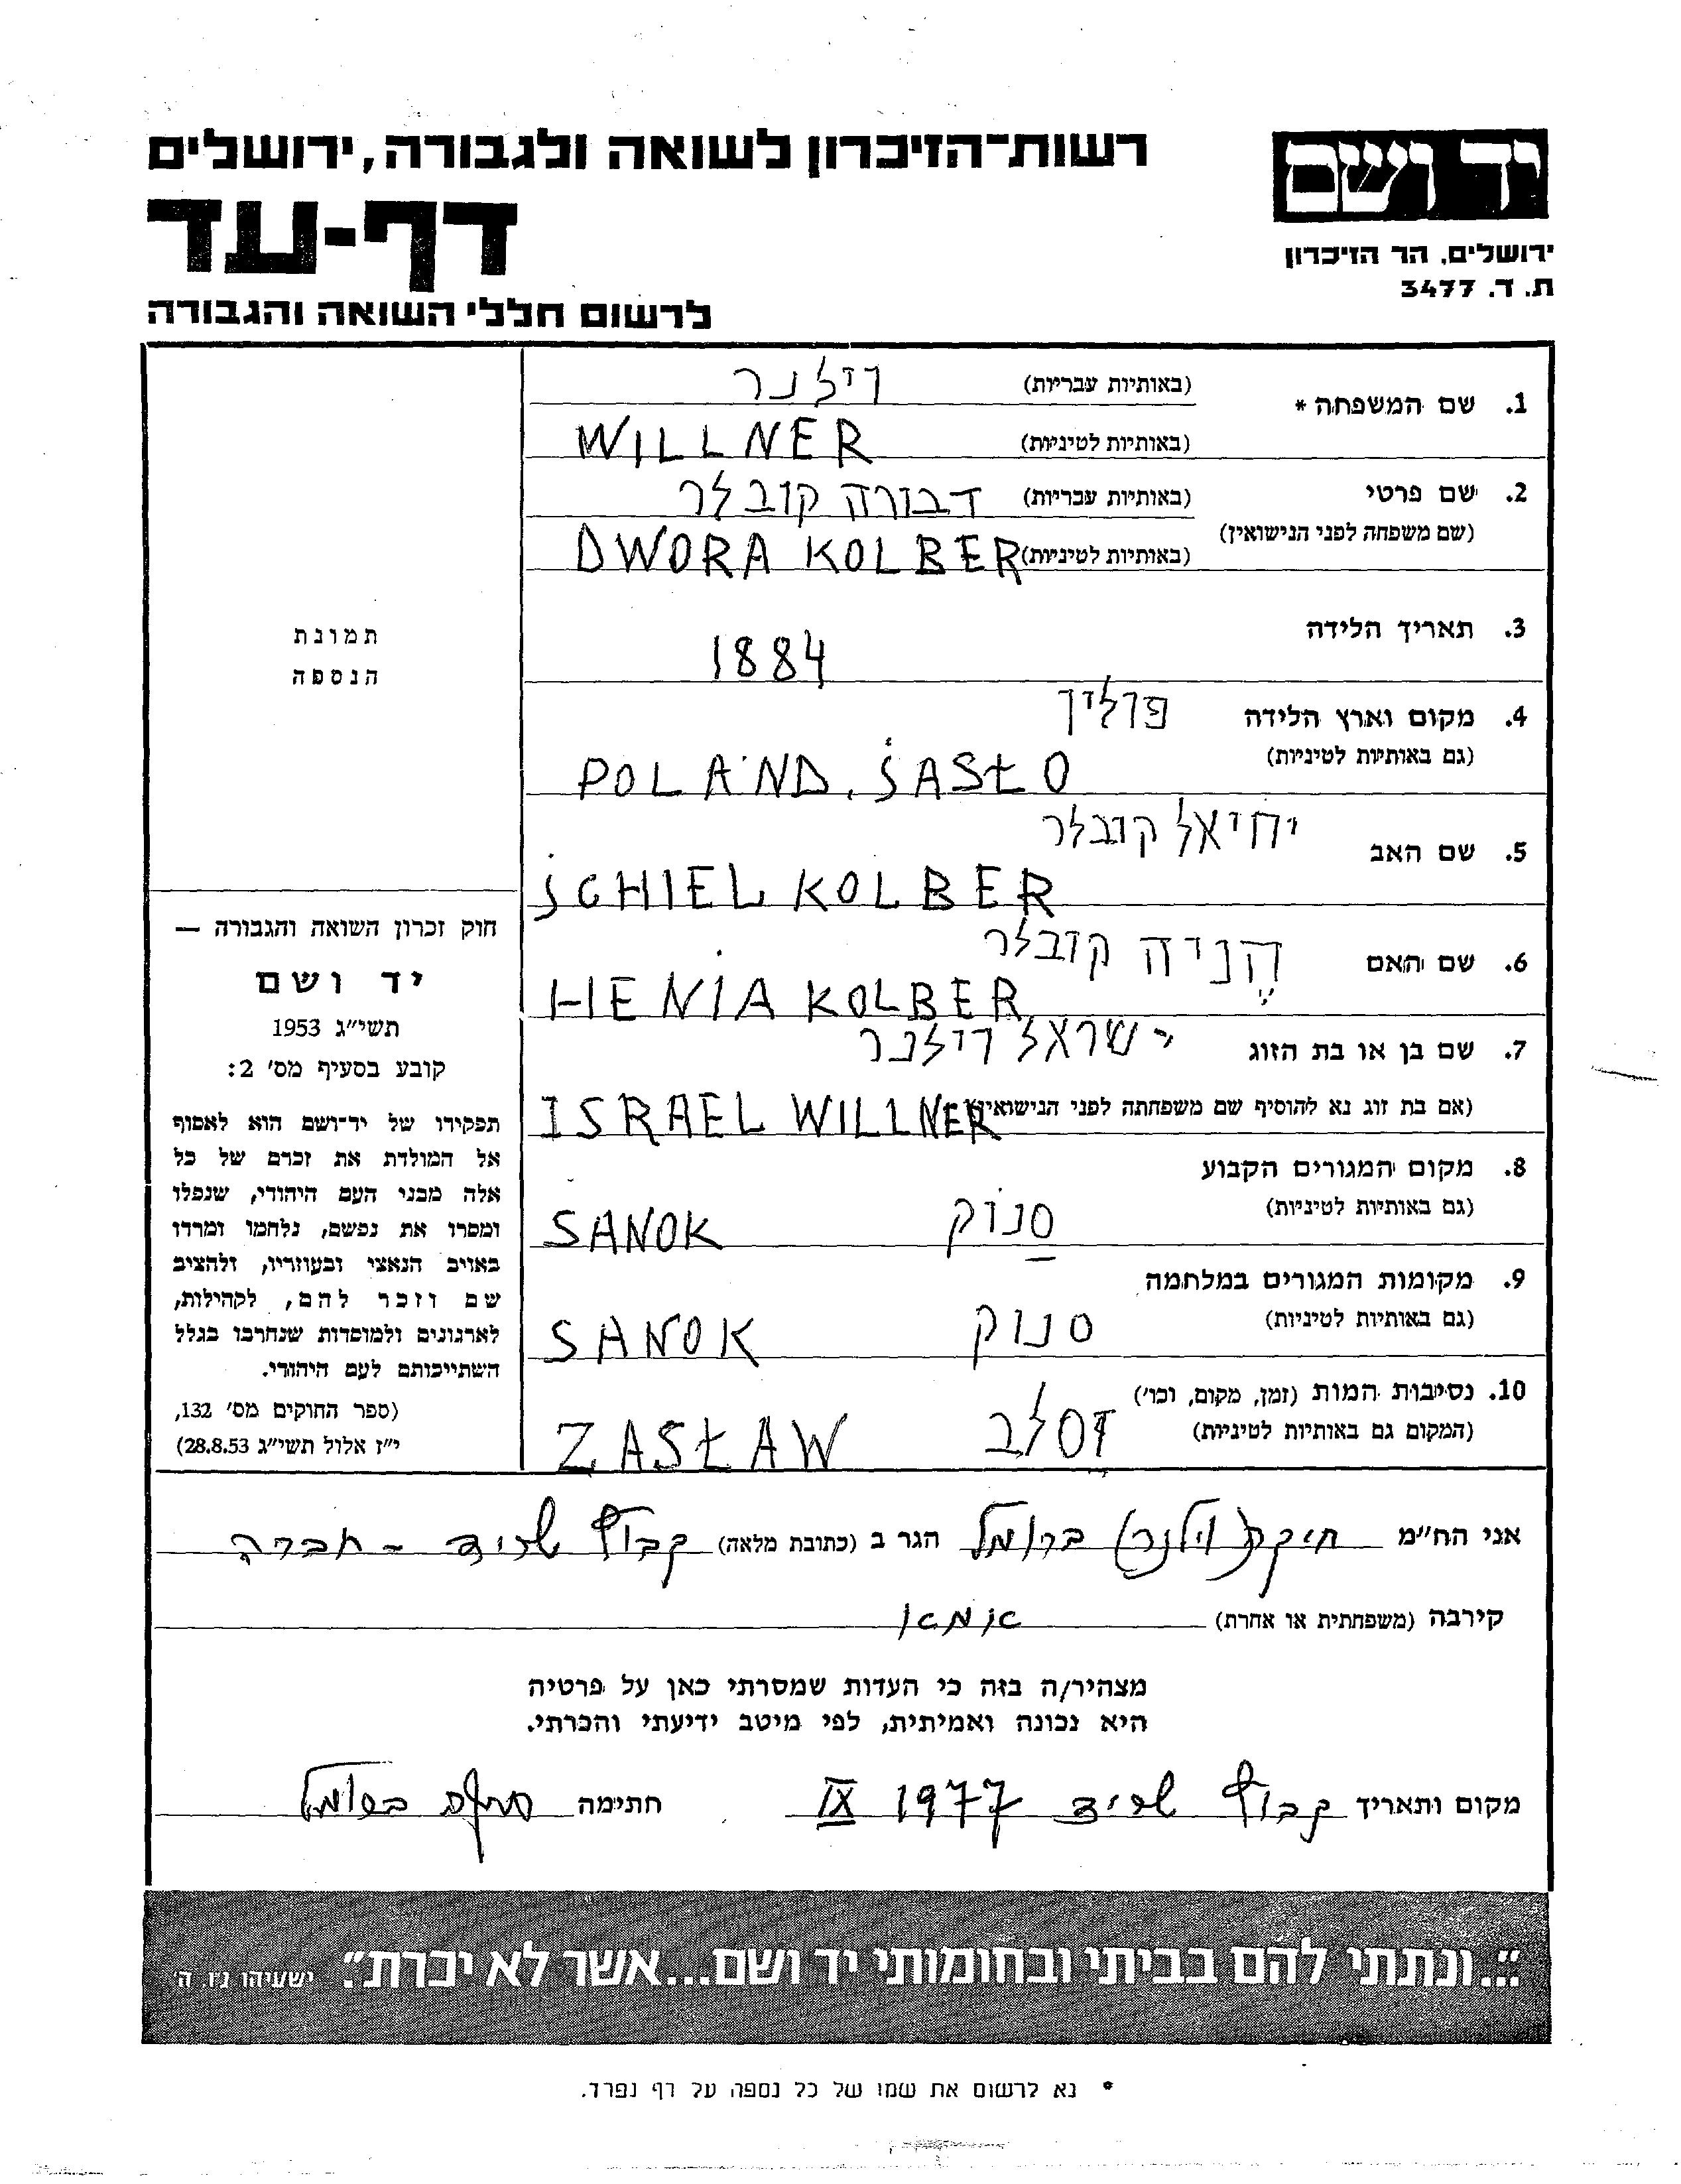 יד ושם
ירושלים, הר הזיכרון
ת. ד. 3477
רשות-הזיכרון לשואה ולגבורה, ירושלים
דף-עד
לרשום חללי השואה והגבורה
1. שם המשפחה * (באותיות עבריות) וילנר
(באותיות לטיניות) WILLNER
2. שם פרטי (באותיות עבריות) דבורה קובלר
(שם משפחה לפני הנישואין) (באותיות לטיניות) DWORA KOLBER
3. תאריך הלידה 1884
4. מקום וארץ הלידה פולין
(גם באותיות לטיניות) POLAND, JASŁO
5. שם האב יחיאל קובלר
JCHIEL KOLBER
6. שם האם הניה קובלר
HENIA KOLBER
7. שם בן או בת הזוג ישראל וילנר
(אם בת זוג נא להוסיף שם משפחתה לפני הנישואין) ISRAEL WILLNER
8. מקום המגורים הקבוע
(גם באותיות לטיניות) סנוק SANOK
9. מקומות המגורים במלחמה
(גם באותיות לטיניות) סנוק SANOK
10. נסיבות המות (זמן, מקום, וכו')
(המקום גם באותיות לטיניות) זסלב ZASŁAW
תמונת
הנספה
חוק זכרון השואה והגבורה —
יד ושם
תשי"ג 1953
קובע בסעיף מס' 2:
תפקידו של יד-ושם הוא לאסוף
אל המולדת את זכרם של כל
אלה מבני העם היהודי, שנפלו
ומסרו את נפשם, נלחמו ומרדו
באויב הנאצי ובעוזריו, ולהציב
שם וזכר להם, לקהילות,
לארגונים ולמוסדות שנחרבו בגלל
השתייכותם לעם היהודי.
(ספר החוקים מס' 132,
י"ז אלול תשי"ג 28.8.53)
אני הח"מ (וילנר) הגר ב (כתובת מלאה) קבוץ שריד - חברה
קירבה (משפחתית או אחרת)
מצהיר/ה בזה כי העדות שמסרתי כאן על פרטיה
היא נכונה ואמיתית, לפי מיטב ידיעתי והכרתי.
מקום ותאריך קבוץ שריד 1977 IX חתימה
"...ונתתי להם בביתי ובחומותי יד ושם...אשר לא יכרת." ישעיהו נ"ו, ה'
* נא לרשום את שמו של כל נספה על דף נפרד.